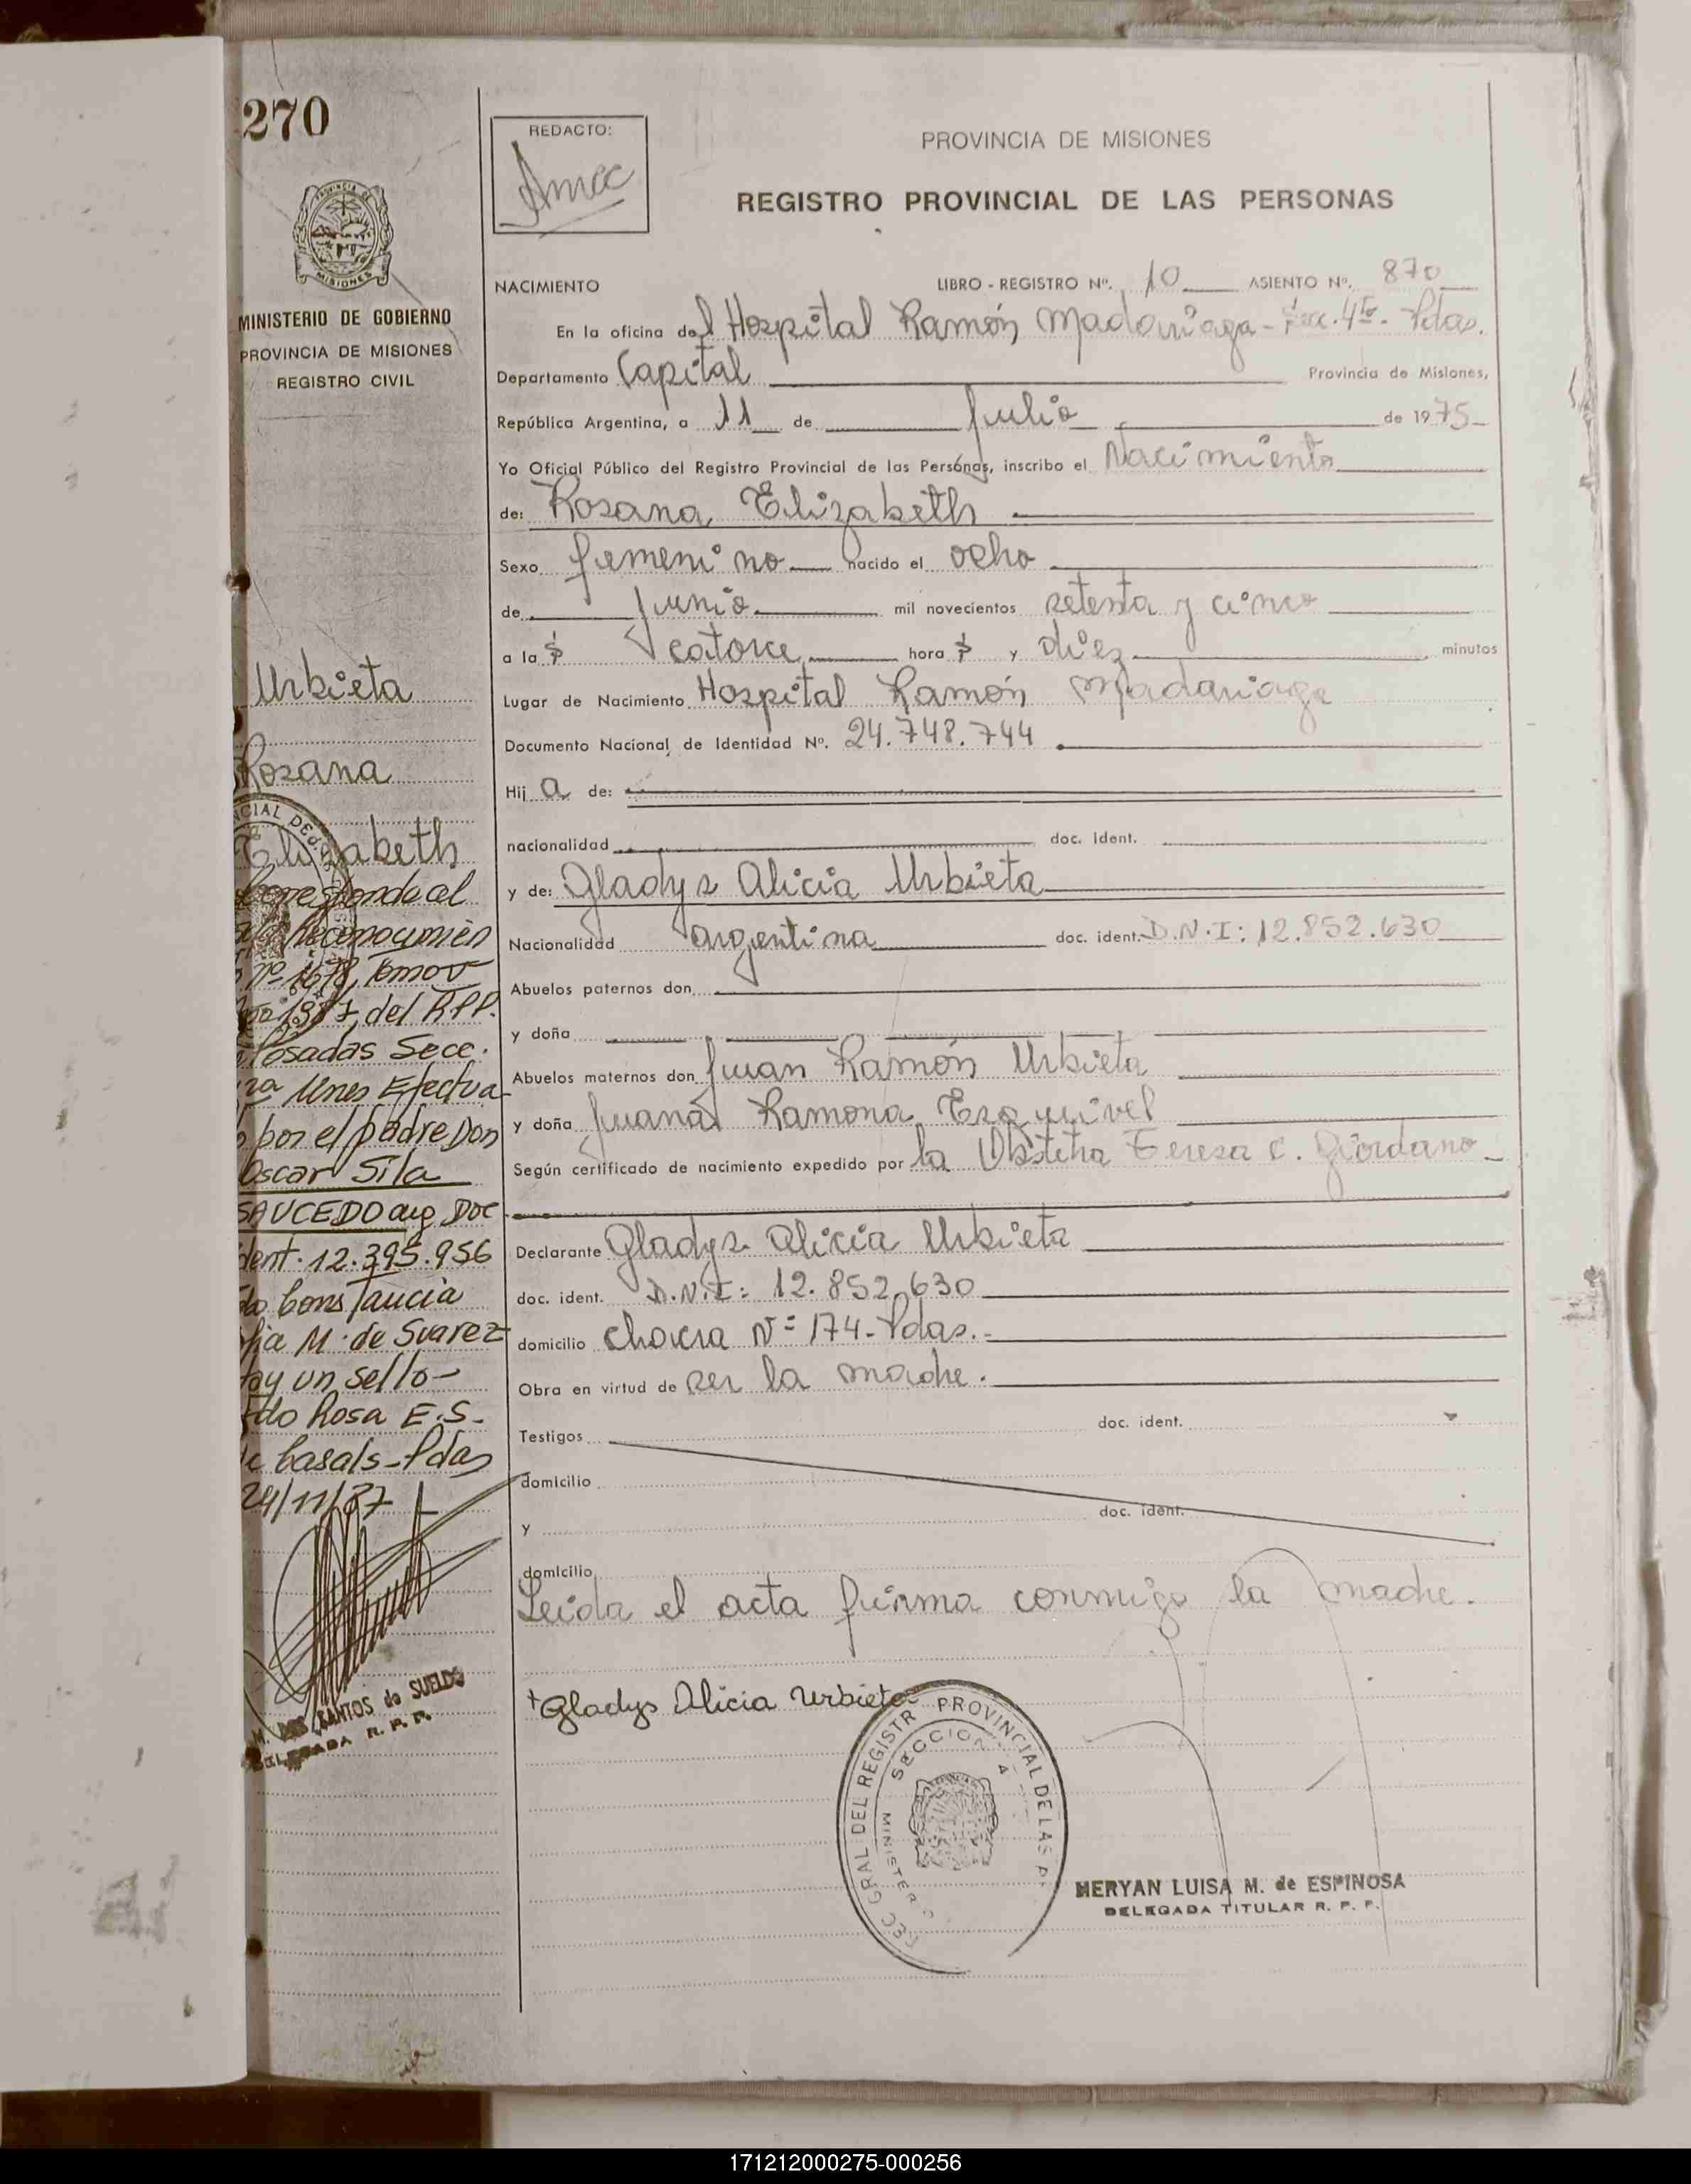 270
REDACTO:
PROVINCIA DE MISIONES
REGISTRO PROVINCIAL DE LAS PERSONAS
MISIONES
MINISTERIO DE GOBIERNO
PROVINCIA DE MISIONES
REGISTRO CIVIL
NACIMIENTO LIBRO - REGISTRO Nº. 10 ASIENTO Nº. 870
En la oficina del Hospital Ramón Madariaga - Sec. 4ta - Pdas.
Departamento Capital Provincia de Misiones,
República Argentina, a 11 de Julio de 1975
Yo Oficial Público del Registro Provincial de las Personas, inscribo el Nacimiento
de: Rosana Elizabeth
Sexo femenino nacido el ocho
de junio mil novecientos setenta y cinco
a las catorce horas y diez minutos
Lugar de Nacimiento Hospital Ramón Madariaga
Documento Nacional de Identidad Nº. 24.748.744
Hija de:
nacionalidad doc. ident.
y de: Gladys Alicia Urbieta
Nacionalidad argentina doc. ident. D.N.I: 12.852.630
Abuelos paternos don
y doña
Abuelos maternos don Juan Ramón Urbieta
y doña Juana Ramona Esquivel
Según certificado de nacimiento expedido por la Obstetra Teresa C. Giordano
Declarante Gladys Alicia Urbieta
doc. ident. D.N.I: 12.852.630
domicilio chacra Nº 174 - Pdas.
Obra en virtud de ser la madre.
Testigos doc. ident.
domicilio
y doc. ident.
domicilio
Leida el acta firma conmigo la madre.
Gladys Alicia Urbieta
Urbieta
Rosana
Elizabeth
Corresponde al
Reconocimien
nº 1678, tomo V
1987, del RPP.
Posadas Secc.
ra Unes Efectua
por el padre Don
Oscar Sila
SAUCEDO arg Doc
ident. 12.395.956
M. de Suarez
hay un sello -
fdo Rosa E.S.
de Casals - Pdas
24/11/87
M. DOS SANTOS de SUELDO
DELEGADA R. P. P.
GRAL DEL REGISTR PROVINCIAL DE LAS P
SECCION 4
MINISTERIO
MERYAN LUISA M. de ESPINOSA
DELEGADA TITULAR R. P. P.
171212000275-000256